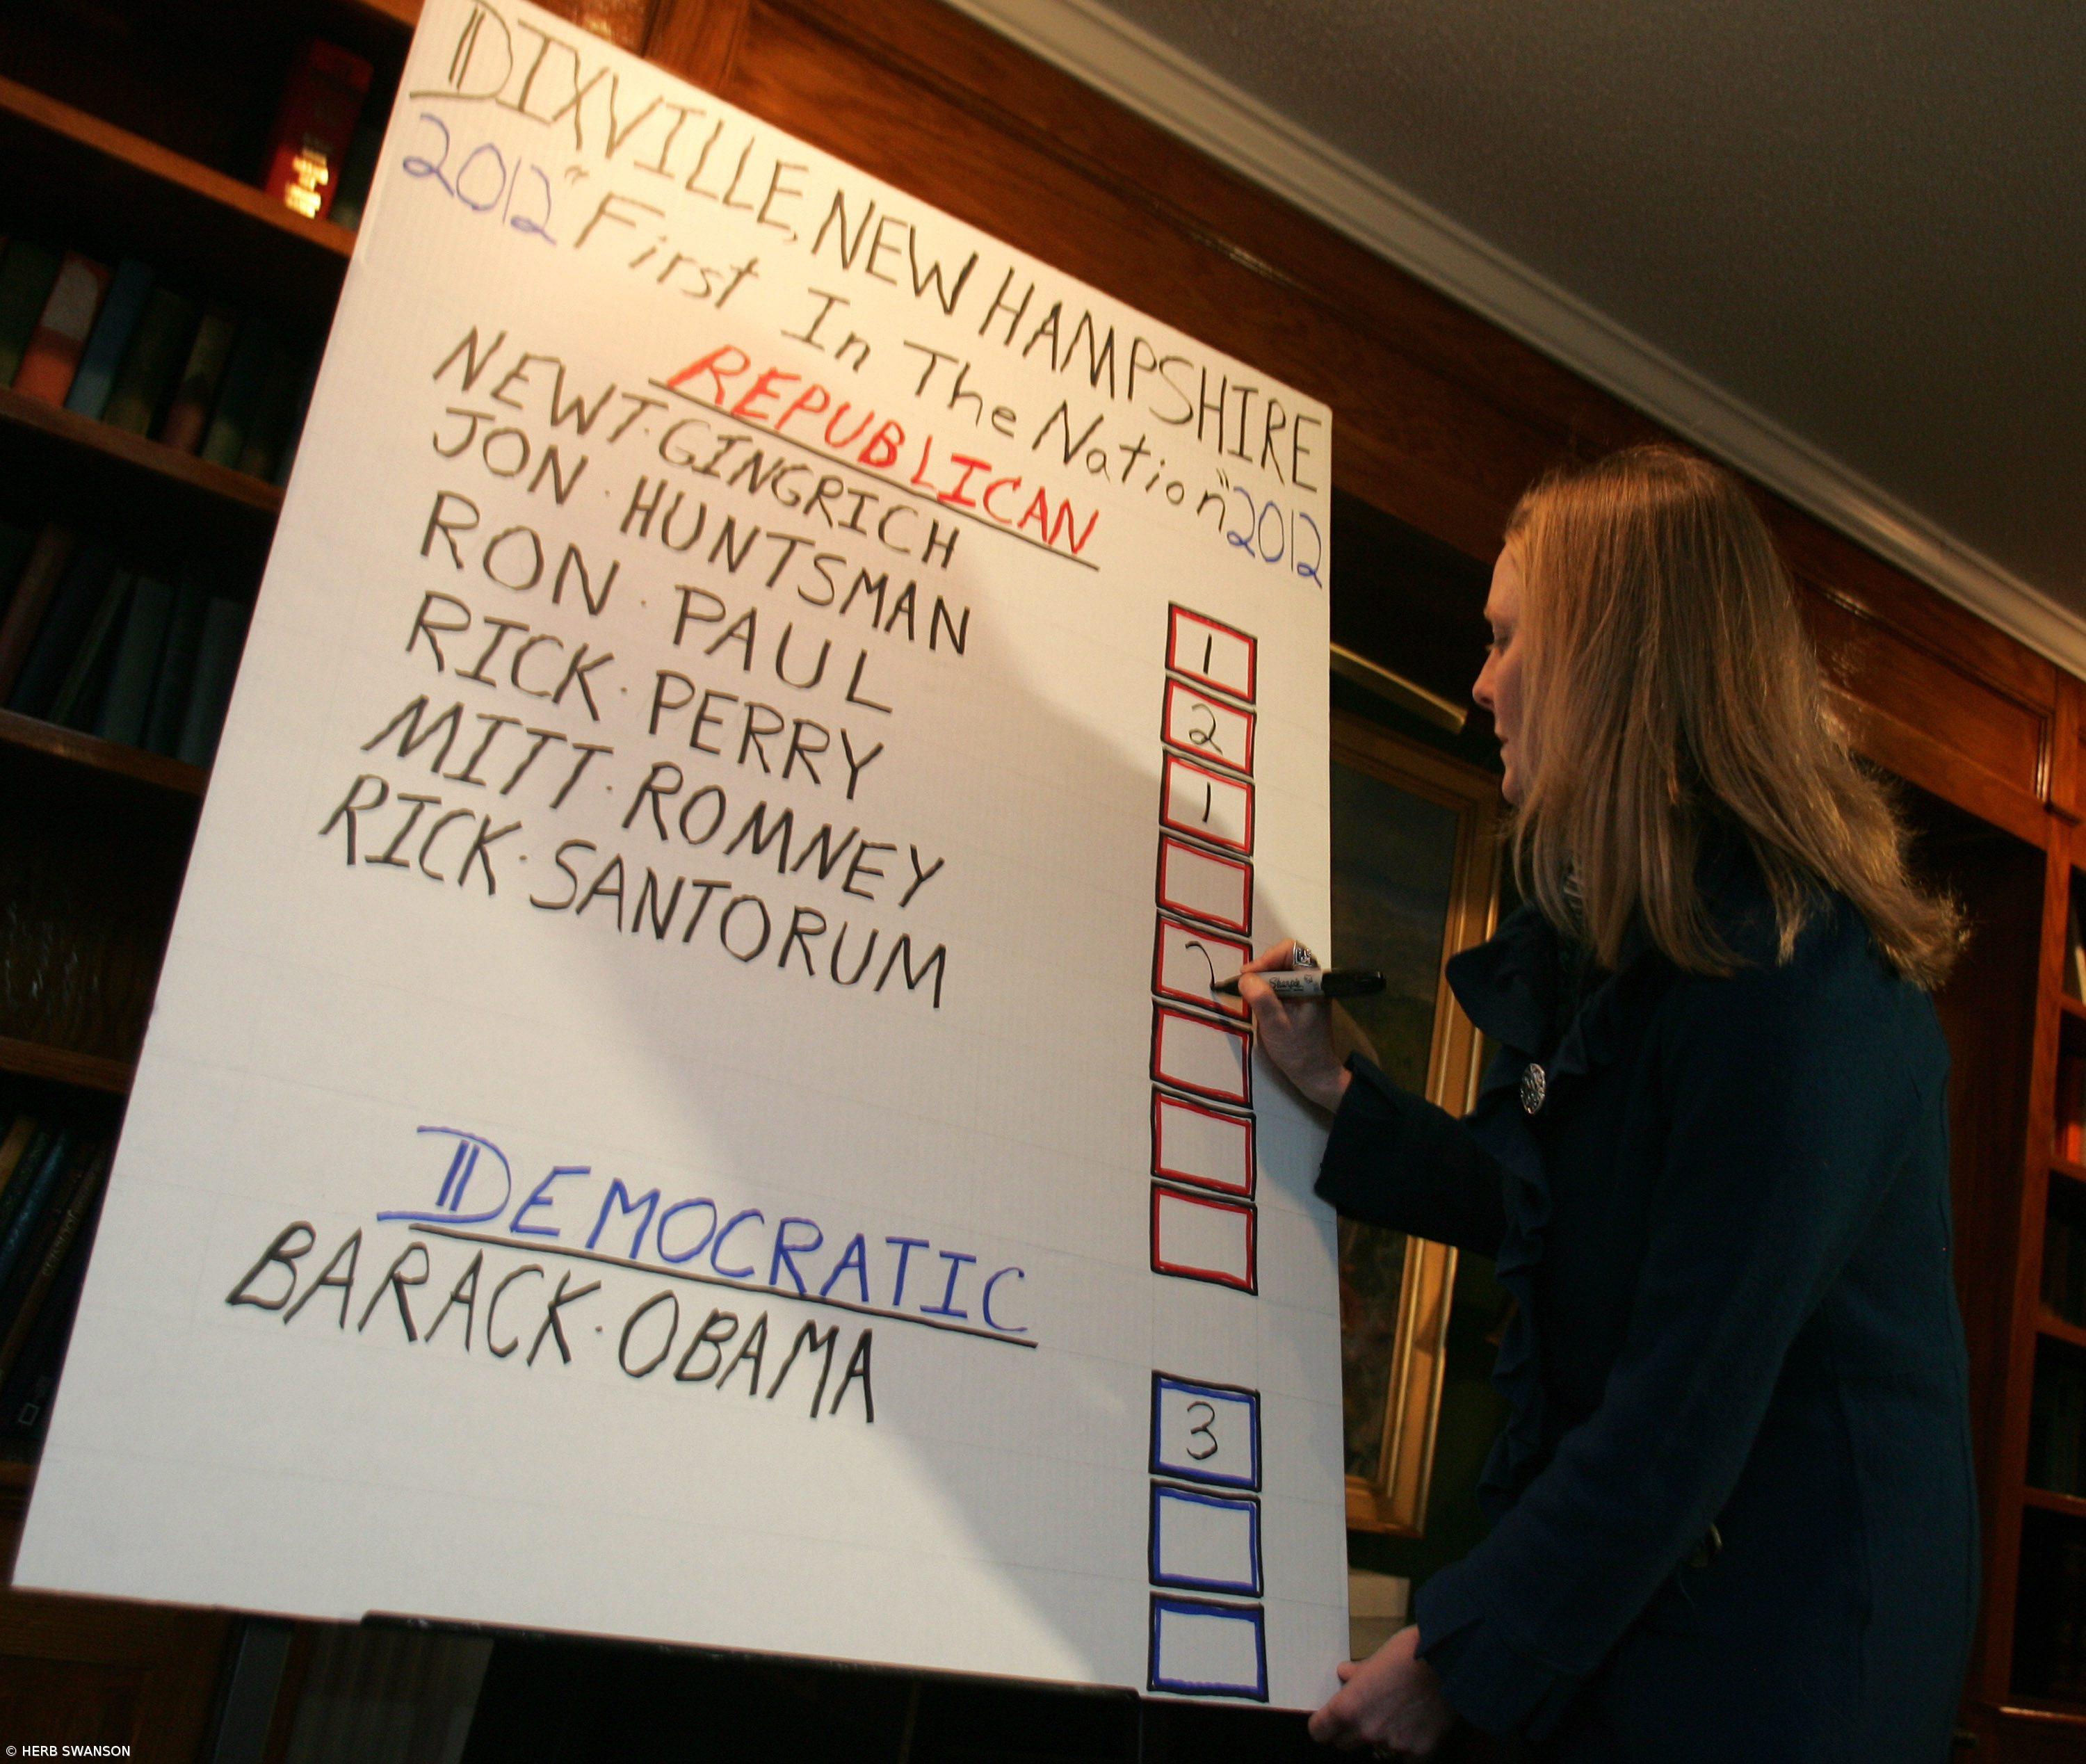 DIXVILLE, NEW HAMPSHIRE
2012 "First In The Nation" 2012
REPUBLICAN
NEWT·GINGRICH 1
JON·HUNTSMAN 2
RON·PAUL 1
RICK·PERRY
MITT·ROMNEY 2
RICK·SANTORUM
DEMOCRATIC
BARACK·OBAMA 3
Sharpie
© HERB SWANSON